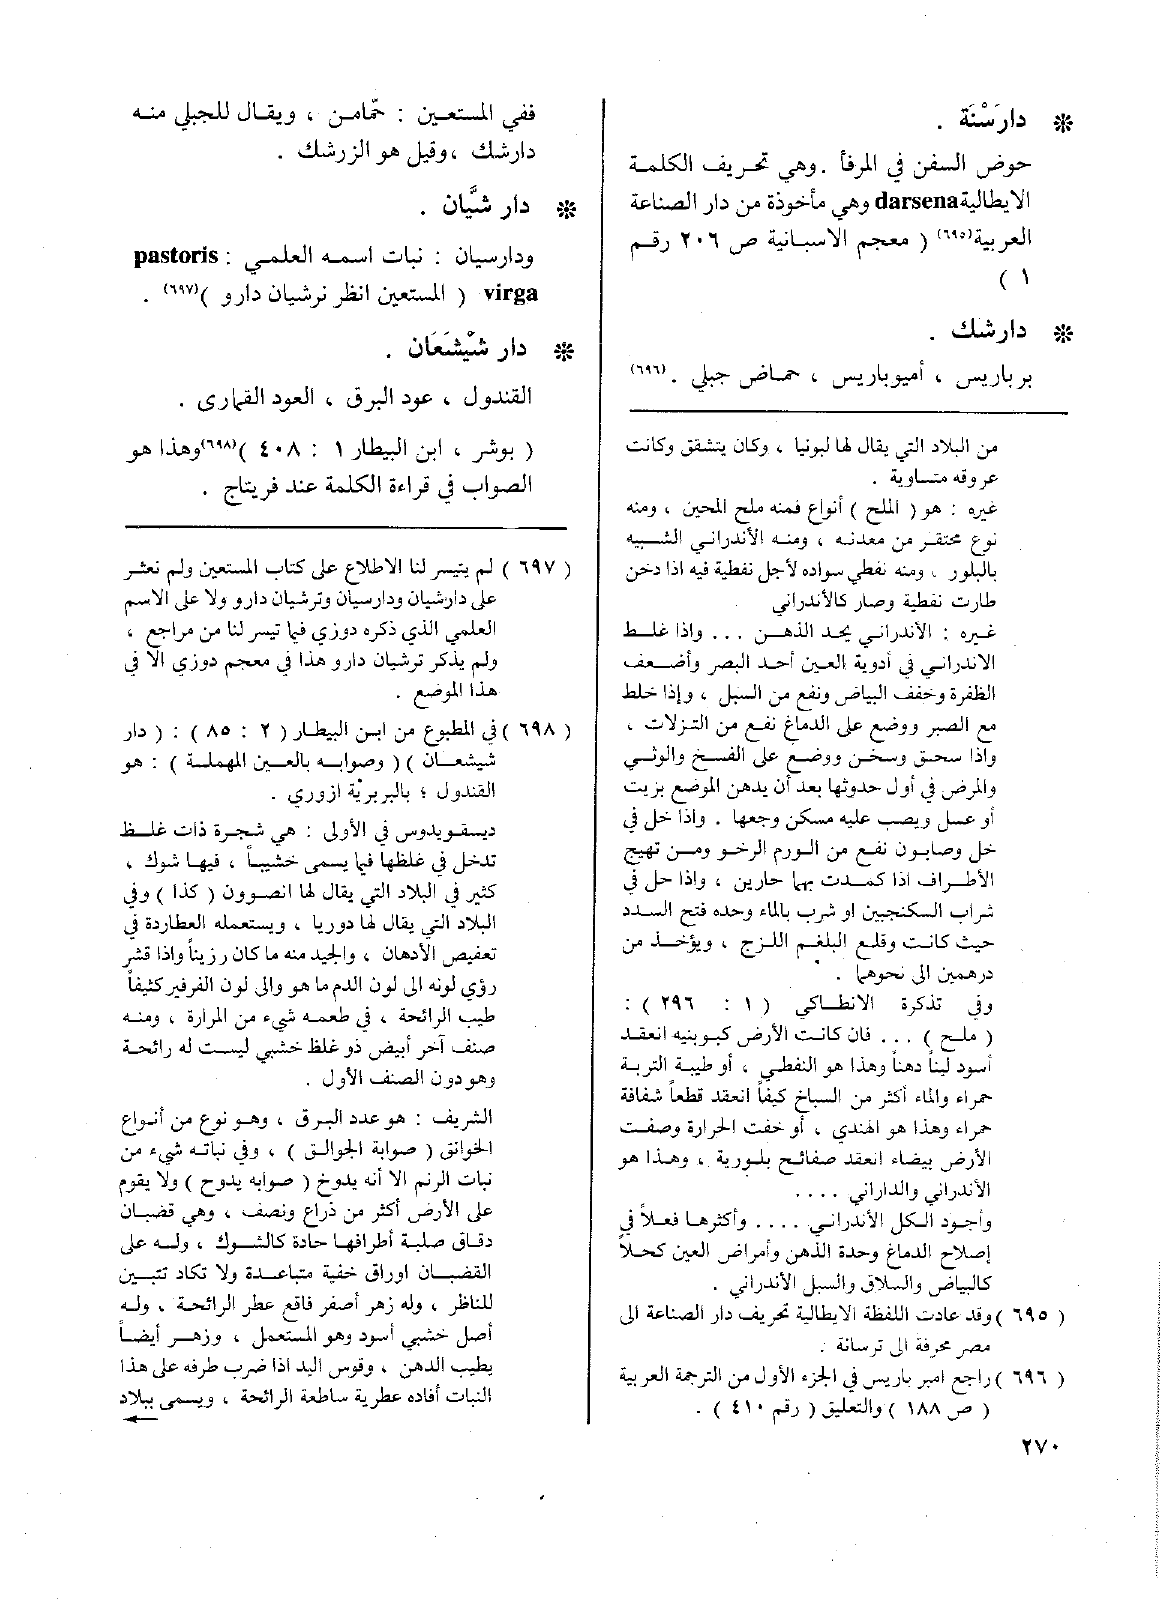 ❊ دارَسْنَة .
حوض السفن في المرفأ . وهي تحريف الكلمة
الايطالية darsena وهي مأخوذة من دار الصناعة
العربية(٦٩٥) ( معجم الاسبانية ص ٢٠٦ رقم
١ )
❊ دارشك .
برباريس ، أميوباريس ، حماض جبلي . (٦٩٦)
من البلاد التي يقال لها لبونيا ، وكان يتشقق وكانت
عروقه متساوية .
غيره : هو ( الملح ) أنواع فمنه ملح المحين ، ومنه
نوع محتقر من معدنه ، ومنه الأندراني الشبيه
بالبلور ، ومنه نفطي سواده لأجل نفطية فيه اذا دخن
طارت نفطية وصار كالأندراني
غيره : الأندراني يحد الذهن ... واذا غلط
الاندراني في أدوية العين أحد البصر وأضعف
الظفرة وخفف البياض ونفع من السبل ، وإذا خلط
مع الصبر ووضع على الدماغ نفع من النزلات ،
واذا سحق وسخن ووضع على الفسخ والوثي
والمرض في أول حدوثها بعد أن يدهن الموضع بزيت
أو عسل ويصب عليه مسكن وجعها . واذا حل في
خل وصابون نفع من الورم الرخو ومن تهيج
الأطراف اذا كمدت بها حارين ، واذا حل في
شراب السكنجبين او شرب بالماء وحده فتح السدد
حيث كانت وقلع البلغم اللزج ، ويؤخذ من
درهمين الى نحوها .
وفي تذكرة الانطاكي ( ١ : ٢٩٦ ) :
( ملح ) ... فان كانت الأرض كبوبنيه انعقد
أسود ليناً دهناً وهذا هو النفطي ، أو طيبة التربة
حمراء والماء أكثر من السباخ كيفاً انعقد قطعاً شفافة
حمراء وهذا هو الهندي ، أو خفت الحرارة وصفت
الأرض بيضاء انعقد صفائح بلورية ، وهذا هو
الأندراني والداراني ....
وأجود الكل الأندراني .... وأكثرها فعلاً في
إصلاح الدماغ وحدة الذهن وأمراض العين كحلاً
كالبياض والسلاق والسبل الأندراني .
( ٦٩٥ ) وقد عادت اللفظة الايطالية تحريف دار الصناعة الى
مصر محرفة الى ترسانة .
( ٦٩٦ ) راجع امبر باريس في الجزء الأول من الترجمة العربية
( ص ١٨٨ ) والتعليق ( رقم ٤١٠ ) .
ففي المستعين : حمّامن ، ويقال للجبلي منه
دارشك ، وقيل هو الزرشك .
❊ دار شيَّان .
ودارسيان : نبات اسمه العلمي : pastoris
virga ( المستعين انظر نرشيان دارو )(٦٩٧) .
❊ دار شيْشَعَان .
القندول ، عود البرق ، العود القماري .
( بوشر ، ابن البيطار ١ : ٤٠٨ )(٦٩٨) وهذا هو
الصواب في قراءة الكلمة عند فريتاج .
( ٦٩٧ ) لم يتيسر لنا الاطلاع على كتاب المستعين ولم نعثر
على دارشيان ودارسيان وترشيان دارو ولا على الاسم
العلمي الذي ذكره دوزي فيما تيسر لنا من مراجع ،
ولم يذكر ترشيان دارو هذا في معجم دوزي الا في
هذا الموضع .
( ٦٩٨ ) في المطبوع من ابن البيطار ( ٢ : ٨٥ ) : ( دار
شيشعان ) ( وصوابه بالعين المهملة ) : هو
القندول ؛ بالبربريّة ازوري .
ديسقوريدوس في الأولى : هي شجرة ذات غلظ
تدخل في غلظها فيما يسمى خشبياً ، فيها شوك ،
كثير في البلاد التي يقال لها انصوون ( كذا ) وفي
البلاد التي يقال لها دوريا ، ويستعمله العطاردة في
تعفيص الأدهان ، والجيد منه ما كان رزيناً واذا قشر
رؤي لونه الى لون الدم ما هو والى لون الفرفير كثيفاً
طيب الرائحة ، في طعمه شيء من المرارة ، ومنه
صنف آخر أبيض ذو غلظ خشبي ليست له رائحة
وهو دون الصنف الأول .
الشريف : هو عدد البرق ، وهو نوع من أنواع
الخوانق ( صوابة الجوالق ) ، وفي نباته شيء من
نبات الرتم الا أنه يدوخ ( صوابه يدوح ) ولا يقوم
على الأرض أكثر من ذراع ونصف ، وهي قضبان
دقاق صلبة أطرافها حادة كالشوك ، وله على
القضبان اوراق خفية متباعدة ولا تكاد تتبين
للناظر ، وله زهر أصفر فاقع عطر الرائحة ، وله
أصل خشبي أسود وهو المستعمل ، وزهر أيضاً
يطيب الدهن ، وقوس اليد اذا ضرب طرفه على هذا
النبات أفاده عطرية ساطعة الرائحة ، ويسمى ببلاد
←
٢٧٠